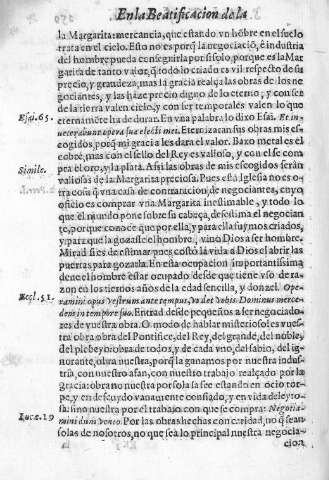 En la Beatificacion de la
la Margarita: mercancia, que estando vn hõbre en el suelo
trata en el cielo. Esto no es porq̃ la negociaciõ, è industria
del hombre pueda conseguirla por si solo, porque es la Mar
garita de tanto valor, q̃ todo lo criado es vil respecto de su
precio, y grandeza, mas la gracia realça las obras de los ne
gociantes, y las haze precio digno de lo eterno, y con ser
de la tierra valen cielo, y con ser temporales valen lo que
eternamẽte ha de durar. En vna palabra lo dixo Esai. Et in-
Esai. 65.
opera sua electi mei. Eternizaràn sus obras mis es-
cogidos, porq̃ mi gracia les darà el valor. Baxo metal es el
cobre, mas con el sello del Rey es valioso, y con el se com
pra el oro, y la plata. Assi las obras de mis escogidos seràn
Simile.
valiosas de la Margarita preciosa. Pues essa Iglesia no es o-
tra cosa q̃ vna casa de contratacion, de negociantes, cuyo
oficio es comprar vna Margarita inestimable, y todo lo
que el mundo pone sobre su cabeça, desestima el negocian
te, porque conoce que por ella, y para ella fuymos criados,
y para que la gozasse el hombre, vino Dios a ser hombre.
Mirad si es de estimar pues costò la vida a Dios el abrir las
puertas para gozarla. En esta ocupacion importantissima
deue el hombre estar ocupado desde que tiene vso de ra-
zon en los tiernos años de la edad sencilla, y donzel. Ope-
Eccl. 51.
ramini opus vestrum ante tempus, & dabit vobis Dominus merce-
dem in tempore suo. Entrad desde pequeños a ser negociado-
res de vuestra obra. O modo de hablar misterioso! es vues-
tra obra obra del Pontifice, del Rey, del grande, del noble,
del plebeyo, obra de todos, y de cada vno, del sabio, del ig-
norante, obra nuestra, porq̃ la ganamos por nuestra indus-
tria, con nuestro afan, con nuestro trabajo realçado por la
gracia: obra no nuestra por sola se estando en ocio tor-
pe, y en descuydo vanamente confiado, y en vida deleyto-
sa: sino nuestra por el trabajo con que se compra: Negotia-
Lucæ. 19
mini dum venio. Por las obras hechas con caridad, no q̃ sean
solas de nosotros, no que sea lo principal nuestra negocia-
cion